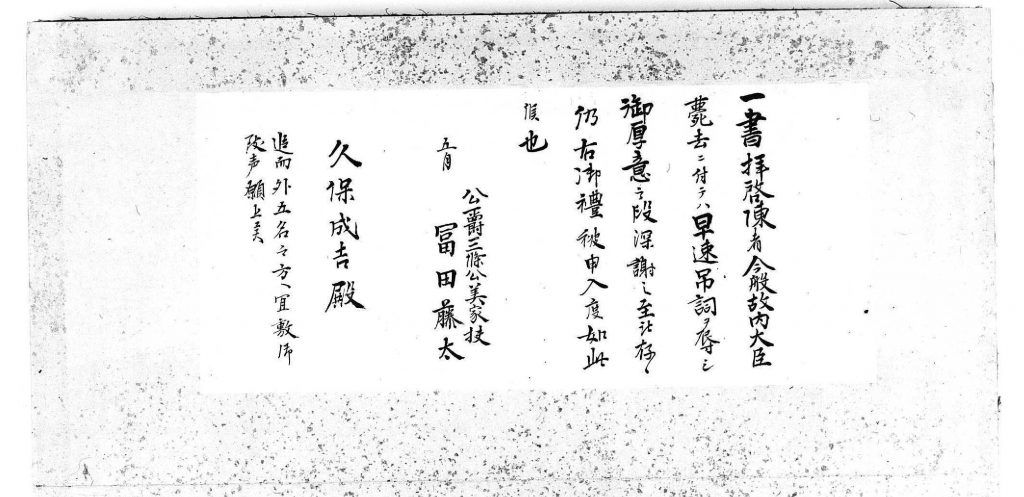 一書拝啓陳者今般故内大臣
薨去ニ付テハ早速吊詞ヲ辱シ
御厚意之段深謝之至ニ存候
仍右御禮被申入度如此
候也
五月
公爵三條公美家扶
冨田藤太
久保成吉殿
追而外五名之方へ宜敷御
致声願上候